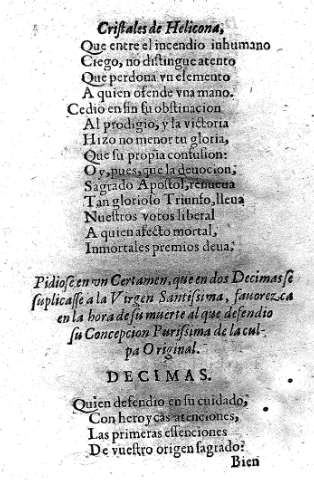 Cristales de Helicona,
Que entre el incendio inhumano
Ciego, no distingue atento
Que perdona vn elemento
A quien ofende vna mano.
Cedió en fin su obstinacion
Al prodigio, y la victoria
Hizo no menor tu gloria,
Que su propia confusion:
Oy, pues, que la deuocion,
Sagrado Apostol, renueua
Tan glorioso Triunfo, lleua
Nuestros votos liberal
A quien afecto mortal,
Inmortales premios deua.
Pidiose en vn Certamen, que en dos Decimas se
suplicasse a la Virgen Santissima, fauorezca
en la hora de su muerte al que defendio
su Concepcion Purissima de la cul-
pa Original.
DECIMAS.
Quien defendio en su cuidado,
Con heroycas atenciones,
Las primeras essenciones
De vuestro origen sagrado?
Bien